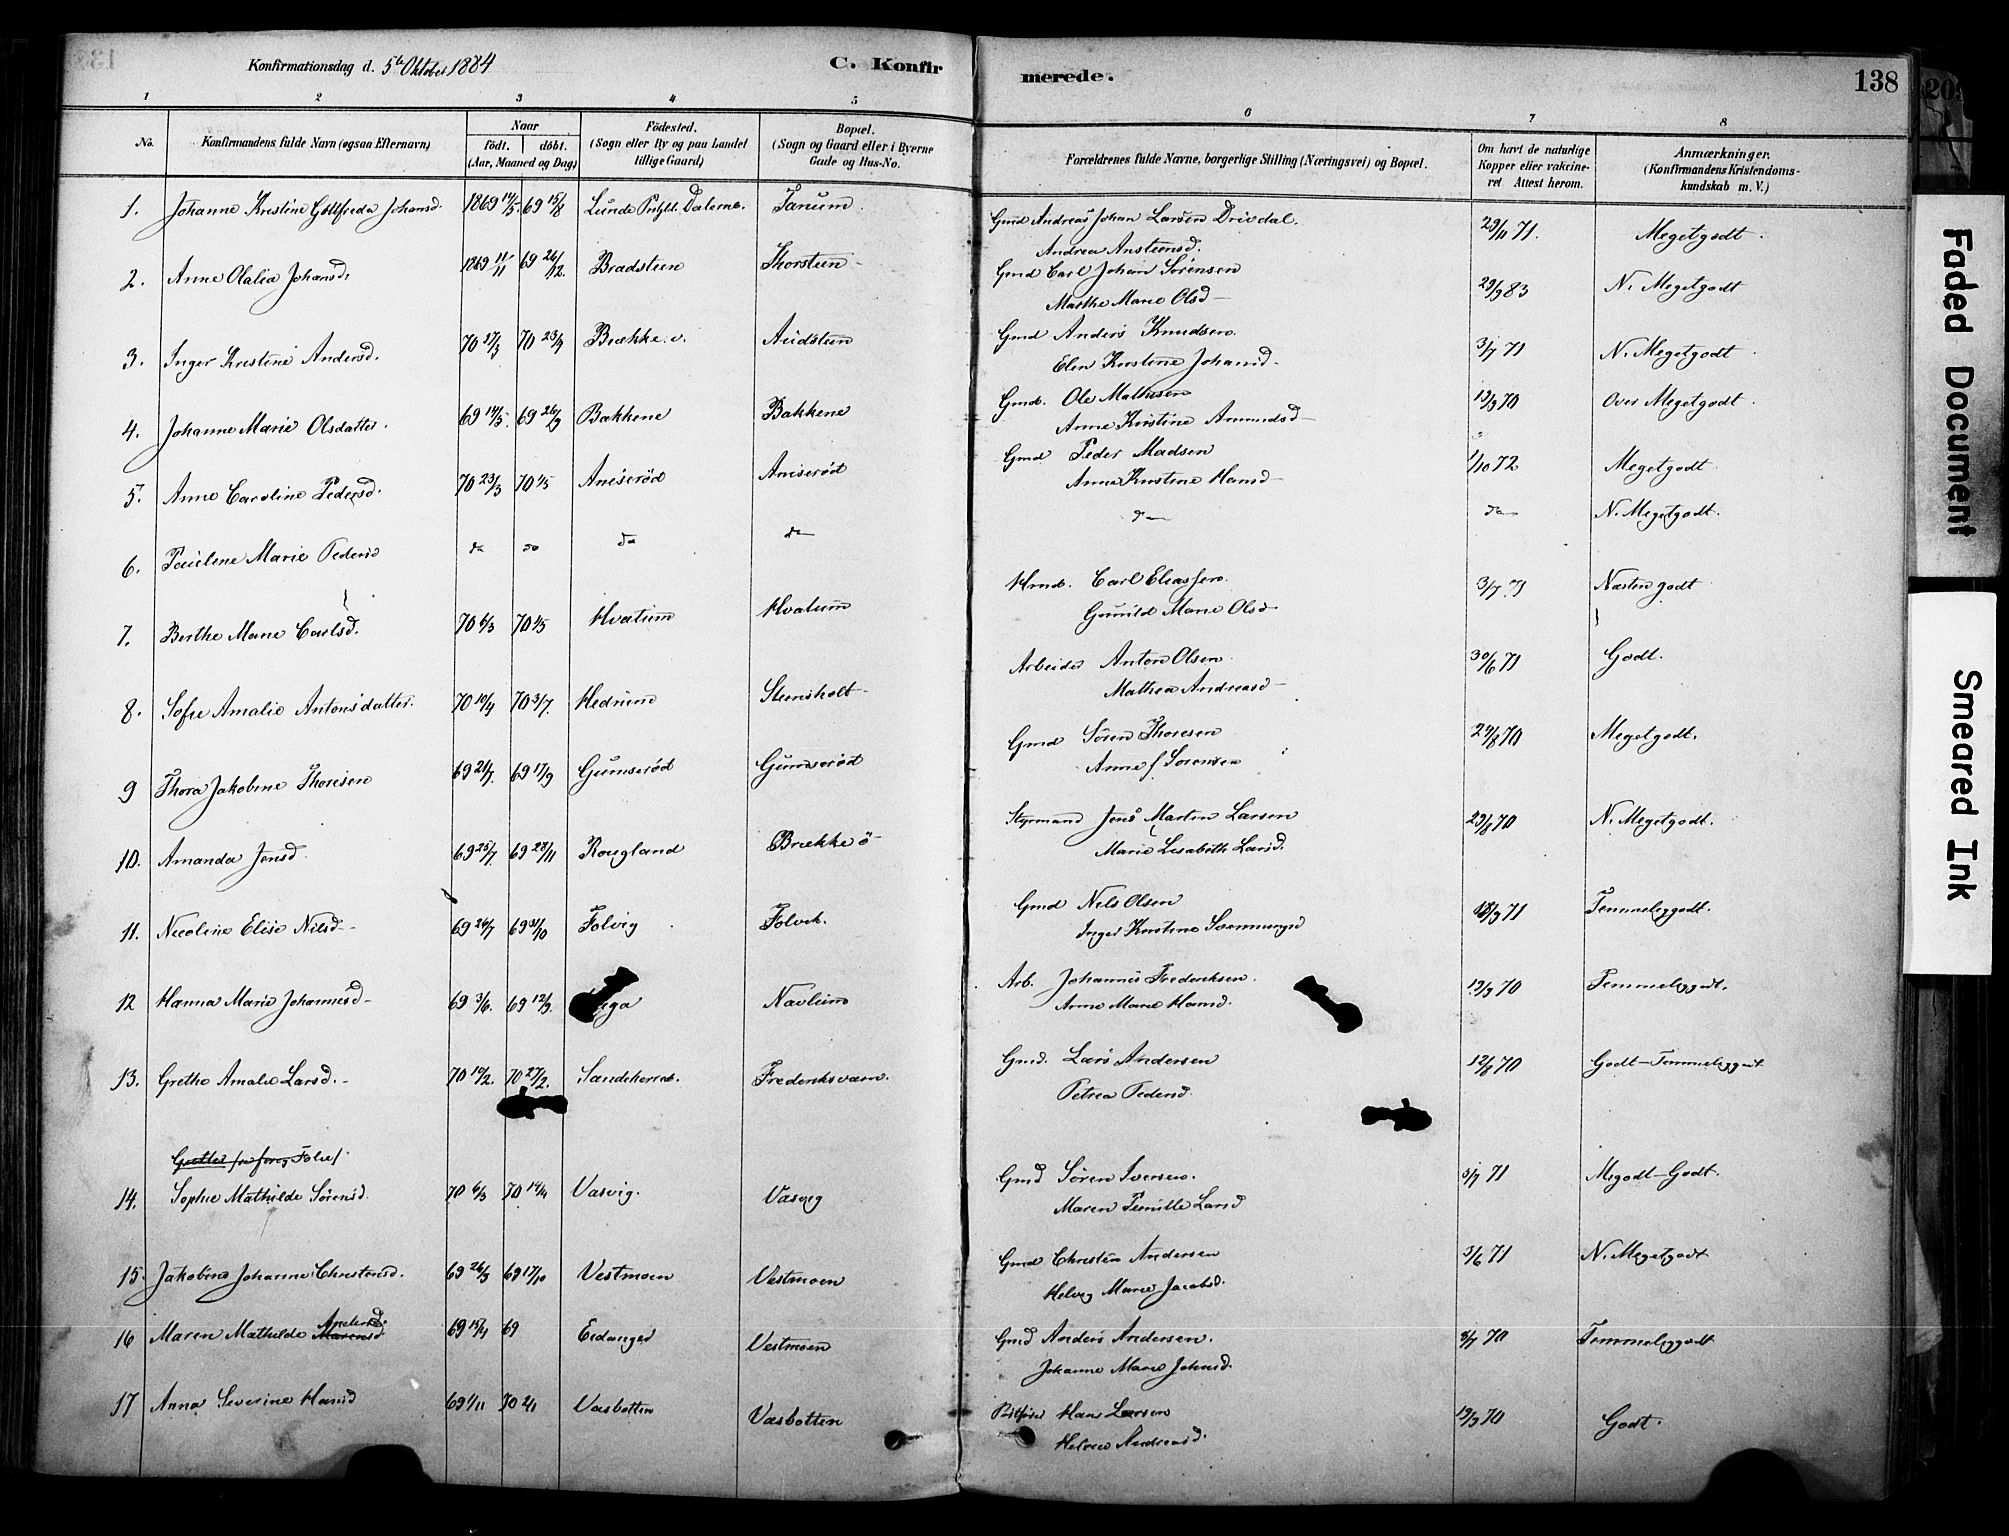 Konfirmationsdag d. 5te Oktober 1884 C. Konfirmerede. 138
1 2 3 4 5 6 7 8
No. Konfirmandens fulde Navn (ogsaa Efternavn) Naar födt. döbt. (Aar, Maaned og Dag) Födested. (Sogn eller By og paa Landet tillige Gaard) Bopæl. (Sogn og Gaard eller i Byerne Gade og Hus-No. Forældrenes fulde Navne, borgerlige Stilling (Næringsvei) og Bopæl. Om havt de naturlige Kopper eller vakcineret Attest herom. Anmærkninger. (Konfirmandens Kristendomskundskab m. V.)
1. Johanne Kristine Gottfreda Johansd. 1869 14/5 69 15/8 Lunde Dalerne Tanum Gmd Andreas Johan Larsen Drivdal. 29/11 71. Megetgodt.
Andrea Anstensd.
2. Anne Olalia Johansd. 1869 11/11 69 26/12. Bradsteen Thorsteen Gmd Carl Johan Sörensen 29/9 83 N. Megetgodt
Marthe Marie Olsd
3. Inger Kristine Andersd. 70 27/3 70 23/4 Brække v. Audsteen Gmd Anders Knudsen 3/7 71 N. Megetgodt
Elen Kristine Johansd
4. Johanne Marie Olsdatter. 69 14/5 69 26/9 Bakkene Bakkene Gmd. Ole Mathisen 13/9 70 Over Megetgodt.
Anne Kristine Amundsd
5. Anne Caroline Pedersd. 70 23/3 70 1/5 Aniserød Aniserød Gmd Peder Madsen 1/10 72 Megetgodt
Anne Kirstine Hansd
6. Paulene Marie Pedersd do do do do do do N. Megetgodt.
7. Berthe Marie Carlsd. 70 6/3 70 1/5 Hvatum Hvatum Hmd. Carl Eliassen 3/7 71 Næsten godt
Gunild Marie Olsd
8. Sofie Amalie Antonsdatter. 70 10/4 70 3/7. Hedrum Steensholt Arbeider Anton Olsen 30/6 71 Godt.
Mathea Andreasd
9 Thora Jakobine Thoresen 69 21/7. 69 17/9 Gumserød Gumserød Gmd Sören Thoresen 24/8 70 Megetgodt.
Anne f. Sörensen
10. Amanda Jensd. 69 25/7 69 28/11 Rougland Brække ö Styrmand Jens Martin Larsen 29/8 70 N. Megetgodt.
Marie Lisabeth Larsd.
11. Nicoline Elise Nilsd 69 26/7 69 31/10 Folvig Folvik. Gmd Nils Olsen 18/9 71 Temmeliggodt.
Inger Kirstine
12 Hanna Marie Johannesd 69 3/6. 69 12/9. Navlum Arb. Johannes Frederiksen 12/9 70 Temmeliggodt.
Anne Marie Hansd.
13. Grethe Amalie Larsd. 70 10/2. 70 27/2. Sandekerret. Frederiksværn. Gmd. Lars Andersen 12/8 70 Godt-Temmeliggodt
Petrea Pedersd.
14. Sophie Mathilde Sörensd 70 6/3 70 18/4 Vasvig. Vasvig Gmd Sören Iversen. 3/7 71 Megodt-Godt.
Maren Pernille Larsd
15. Jakobine Johanne Christensd. 69 26/9 69 17/10 Vestmoen Vestmoen Gmd Christen Andersen 3/6 71 N. Megetgodt
Helvig Marie Jacobsd.
16 Maren Mathilde Andersd. 69 15/4 69 Eidanger Vestmoen Gmd Anders Andersen. 8/7 70 Temmeliggodt
Johanne Marie Johnsd.
17 Anna Severine Hansd 69 1/11 70 2/1 Vasbotten Vasbotten Hans Larsen 19/9 70 Godt.
Andreasd.
Faded Document
Smeared Ink